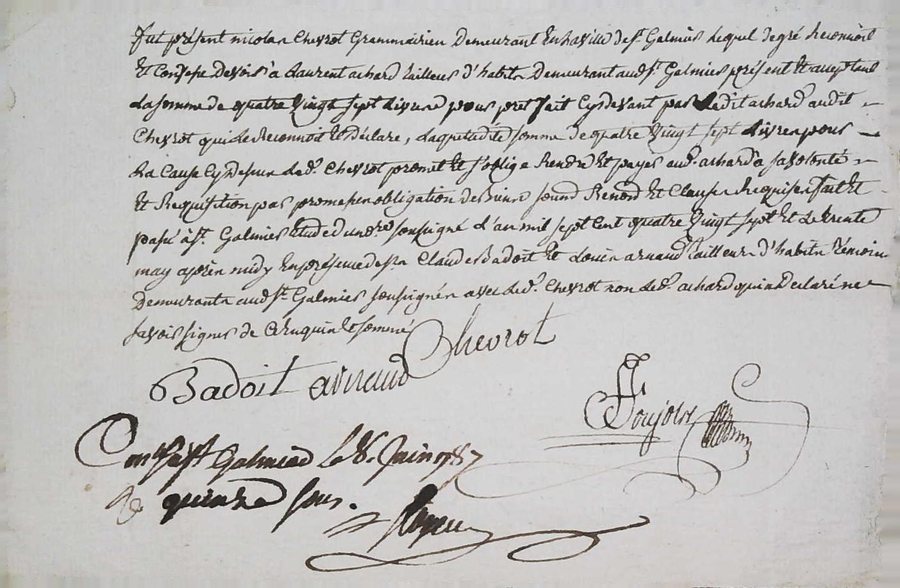 fut présent nicolas Chevrot Grammairien Demeurant En la ville de st. Galmier lequel de gré Reconnoit
Et Confesse Devoir à Laurent achard tailleur d'habits Demeurant aud. st. Galmier présent Et acceptant
La somme de quatre Vingt sept livres pour pret fait Cydevant par ledit achard audit
Chevrot qui le Reconnoit Et Déclare, Laquelle ditte somme de quatre Vingt sept livres pour
La Cause Cydessus led. Chevrot promet Et s'oblige Rendre Et payer aud. achard à sa volonté
Et Requisition par promesse obligation De Biens soumd. Renond. Et Clauses Requises fait Et
passé à st. Galmier Etude du nore. soussigné L'an mil sept Cent quatre Vingt sept Et Le trente
may après midy En présence de srs. Claude Badoit Et Louis arnaud tailleurs d'habits témoins
Demeurants aud. st. Galmier soussignés avec led. Chevrot non led. achard qui a Déclaré ne
savoir signer de Ce Enquis Et sommé
Chevrot
Badoit arnaud
Conlé à st. Galmier le 8. Juin 1787
Re quinze sous.